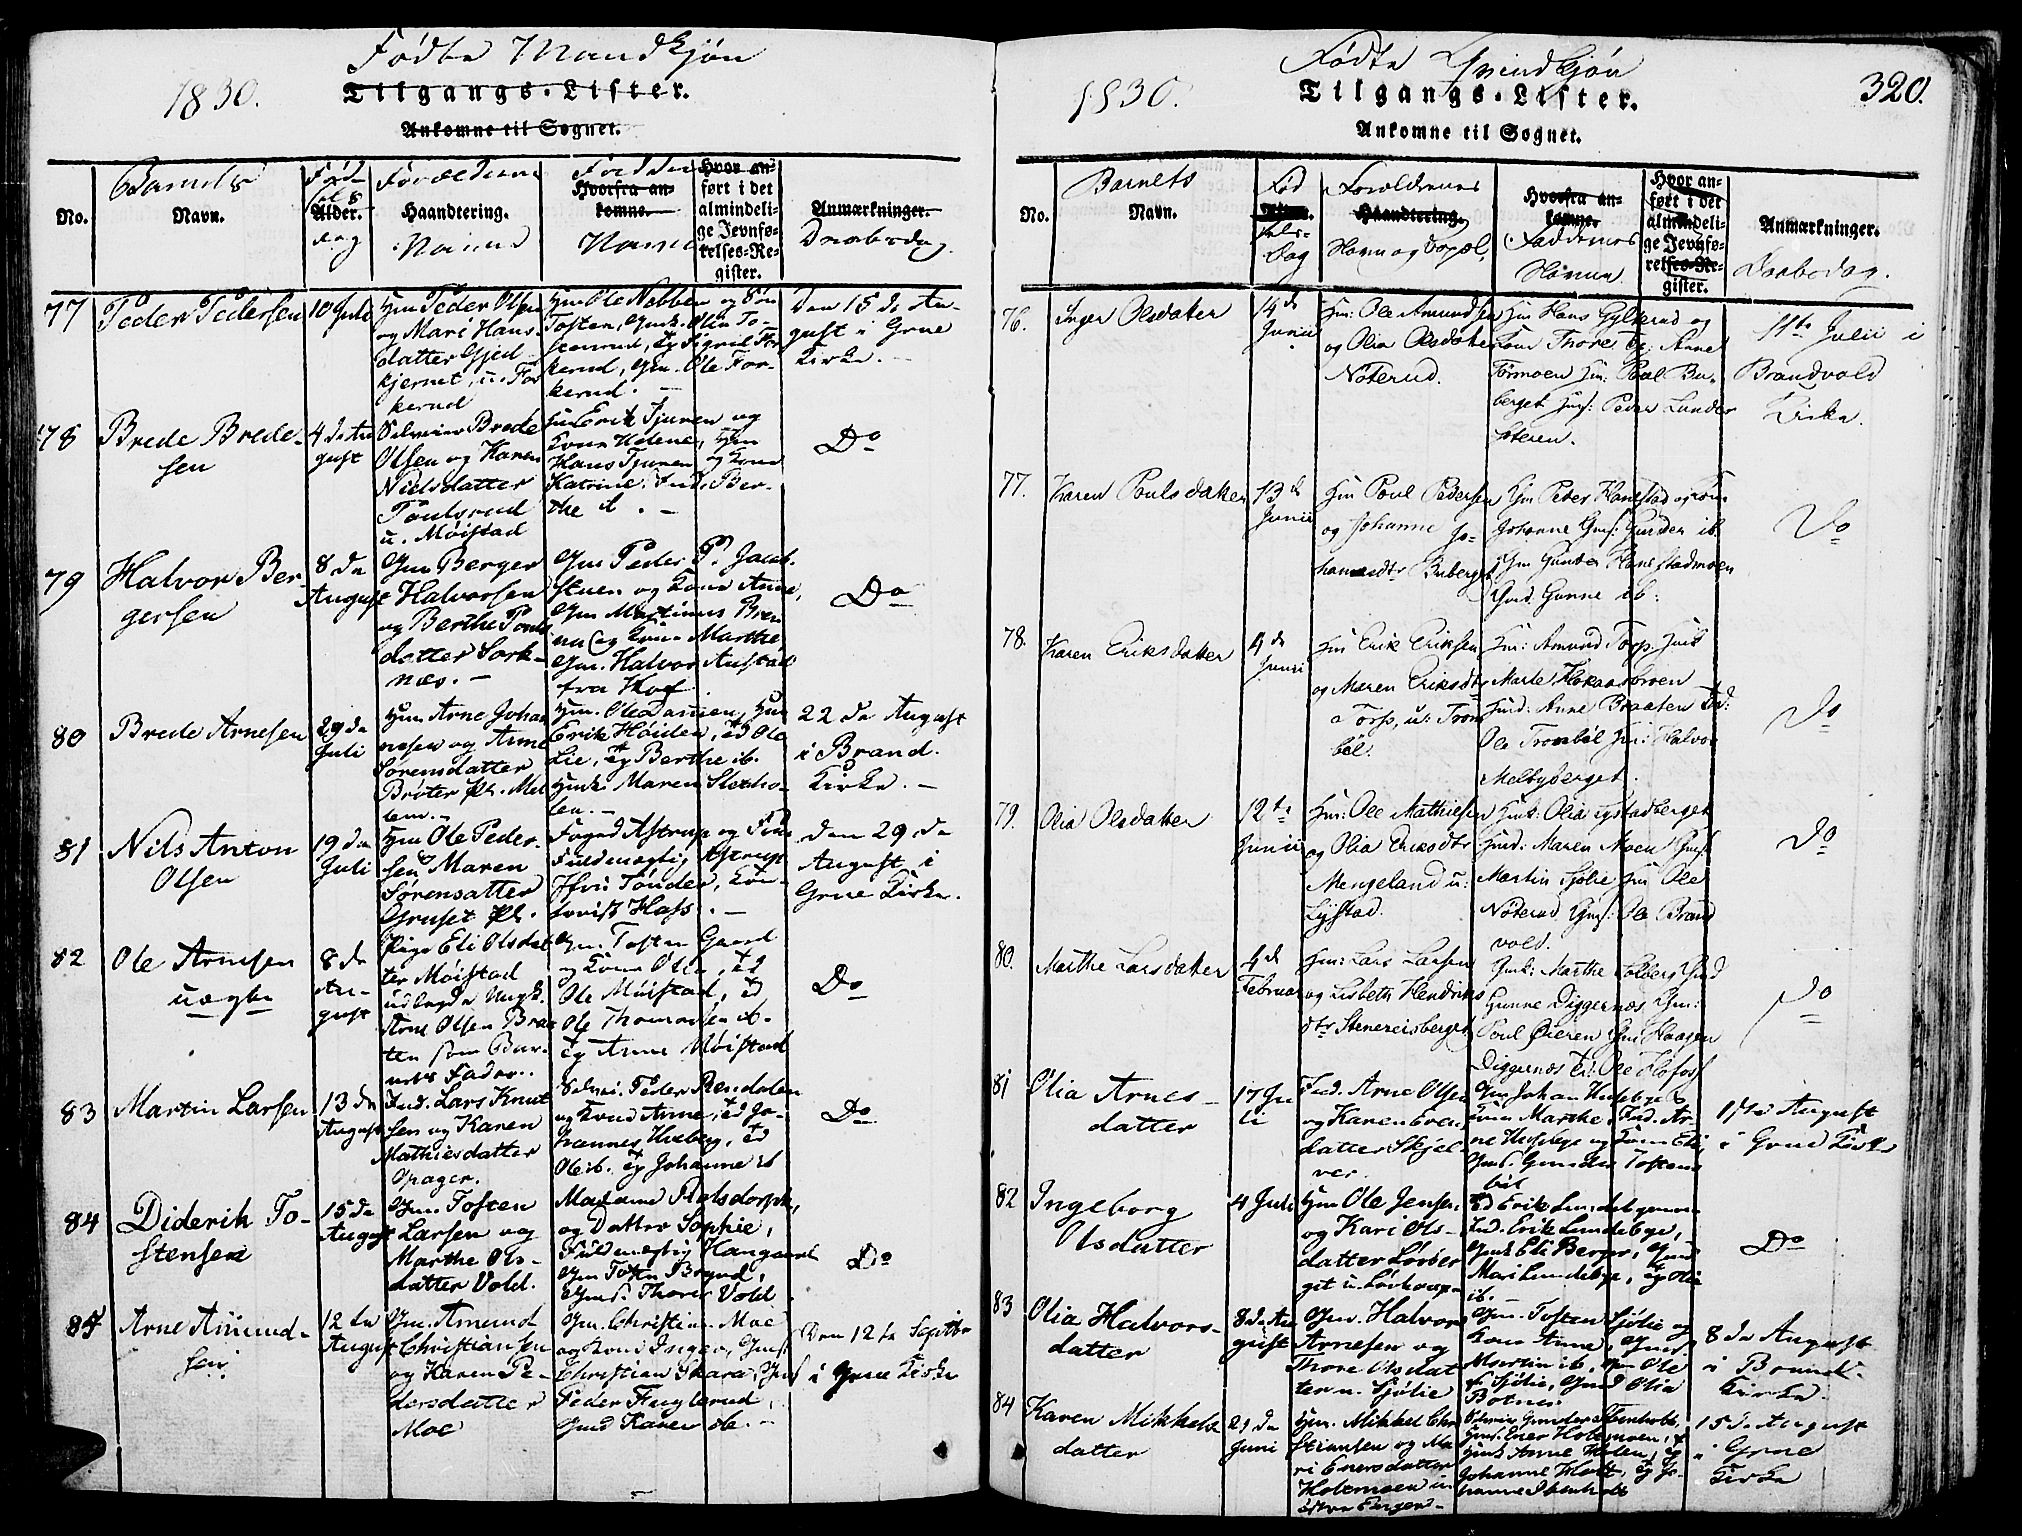 Fødte Mandkjøn
1830.
Tilgangs-Lister.
Ankomne til Sognet.
No.
Barnets
Navn.
Føds
els
Alder.
dag
Forældrene
Haandtering.
Navne
Hvorfra an-
komne.
Navne
Hvor an-
ført i det
almindeli-
ge Jevnfø-
relses-Re-
gister.
Anmærkninger.
Daabsdag
77
Peder Pedersen
10 Juli
Hm Peder Olsen
og Mari Hans
datter Gjed
kjernet, u. For
kerud
Hm Ole Nebben og Søn
Tosten, Gmk. Olia To-
stenrud, Eg Sigrid For
kerud, Gm. Ole For-
kerud.
Den 15 de Au-
gust i Grue
Kirke.
78
Brede Brede-
sen
4 de Au
gust
Selveier Brede
Olsen og Karen
Nielsdatter
Poulsrud
u. Møistad
Hm Erik Tjuren og
Kone Helene, Hm
Hans Tjuren og Kone
Katrine. Ind. Ber-
the ib.
Do
79
Halvor Ber-
gersen
8 de
August
Gm Berger
Halvorsen
og Berthe Pouls
datter Sork-
næs.
Gm Peder P. Jacob-
stuen og Kone Anne,
Gm Martinus Bren
na og Kone Marthe
Gm. Halvor Austad
fra Hof
Do
80
Brede Arnesen
29 de
Juli
Hm Arne Johan
nesen og Anne
Sørensdatter
Brøter Pl. Mel
lem.
Hm. Ole Dammen, Hm
Erik Høiden, Ed Ole
Lie, Eg Berthe ib.
Hmk Maren Stenho-
len.
22 de August
i Brand.
Kirke.
81
Nils Anton
Olsen
19 de
Juli
Hm Ole Peder-
sen Maren
Sørensdatter
Gruset Pl.
Foged Astrup og Frue
Fuldmægtig Astrup
Jfru Tønder, Kon-
torist Hass.
Den 29 de
August i
Grue Kirke.
82
Ole Arnesen
uægte
8 de
Au-
gust
Pige Eli Olsdat
ter Møistad
udlagde Ungk.
Arne Olsen Braa
ten som Bar-
nets Fader.
Gm. Tosten Gaard
og Kone Olia, Ed
Ole Møistad, Ed
Ole Thomassen ib.
Eg Anne Møistad
Do
83
Martin Larsen
13 de
August
Ind. Lars Knut
sen og Karen
Mathiesdatter
Opager.
Selvei. Peder Rendalen
og Kone Anne, Ed Jo-
hannes Huberg, Ed
Ole ib. Eg Johanne ib
Do
84
Diderik To-
stensen
15 de
August
Gm. Tosten
Larsen og
Marthe Ols-
datter Vold.
Madame Ralsdorph,
og Datter Sophie,
Fuldmægtig Haugaard
Gm Tosten Brynd,
Gmd. Thore Vold
Do
85
Arne Amund-
sen
12 de
August
Gm. Amund
Christiansen
og Karen Pe-
dersdatter
Moe
Gm. Christian Moe
og Kone Inger, Gmd
Christian Skara, Gmd
Peder Fuglerud,
Gmd Karen ib.
Den 12 te Septbr
i Grue Kirke
320.
Fødte Qvindekjøn
1830.
Tilgangs-Lister.
Ankomne til Sognet.
No.
Barnets
Navn.
Fød
Alder.
sels-
Dag
Forældrenes
Haandtering.
Navn og Bopæl,
Hvorfra an-
komne.
Faddernes
Navne
Hvor an-
ført i det
almindeli-
ge Jevnfø-
relses-Re-
gister.
Anmærkninger.
Daabsdag.
76.
Inger Olsdatter
14 de
Junii
Hm: Ole Amundsen
og Olia Olsdatter
Noterud.
Hm Hans Gylterud og
Kone Thore Eg: Anne
Tormoen Hm: Poul Bu-
berget Hm: Peder Lunder
sæteren.
11te Julii i
Brandvold
Kirke.
77.
Karen Poulsdatter
13 de
Junii
Hm Poul Pedersen
og Johanne Jo-
hannesdtr Buberget
Gm Peder Hanestad og Kone
Johanne Gmf: Gunder ib.
Gm Gunder Hanestadmoen
Gmd. Gunne ib:
Do
78.
Karen Eriksdatter
4 de
Junii
Hm Erik Eriksen
og Maren Eriksdtr
a Torp, u: Trom
böl.
Hm: Amund Torp. Hmk
Marte Hokaasbroen
Hmd: Anne Braaten Ed:
Ole Tromböl Hm: Halvor
Melbyberget.
Do
79.
Olia Olsdatter
12te
Junii
Hm: Ole Mathiesen
og Olia Eriksdtr
Mengeland u:
Lystad.
Hmk: Olia Lystadberget
Hmd: Maren Moen Gmf.
Martin Sjølie Hm Ole
Noterud Gmf: Ole Brand
vold.
Do
80.
Marthe Larsdatter
4 de
Februar
Hm: Lars Larsen
og Lisbeth Hendriks
dtr Stenereisberget
Gmk: Marthe Solberg Gmd
Gunne Diggernes Gm:
Poul Øieren Gm Haagen
Diggernæs Ed: Ole Hofoss
Do
81
Olia Arnes-
datter
17 Ju
li
Ind. Arne Olsen
og Karen Evens
datter Skjel-
ver
Gm Johan Husebye &
Kone Marthe Ind. Ar-
ne Husebye og Kone Eli,
Gmd. Gunder Tostens
böl
1 te August
i Grue Kirke
82
Ingeborg
Olsdatter
4 Juli
Hm Ole Jensen
og Kari Ols-
datter Lörber
get u. Lövhaug-
Ed Erik Lundebymoen
Ind. Erik Lundebye,
Gmk Eli Berger, Gmd
Mari Lundebye, Eg Olia
ib.
Do
83
Olia Halvors-
datter
8 de Au
gust
Gm. Halvor
Arnesen og
Thore Olsdat
ter u. Sjölie
Gm. Tosten Sjölie og
Kone Anne, Gmd
Martin ib, Gm Ole
Sjölie, Gmd Olia
Botner
8 de August
i Brand.
Kirke.
84
Karen Mikkels
datter
21 de
Juni
Hm. Mikkel Chri
stiansen og Ma
ri Enersdatter
Holtmoen u.
Selveier Gunder Stenholt,
Hmd. Ener Holtmoen, &
Hmk Anne Holen, Eg
Johanne Holt, Eg Jo-
hanne Stenholt
15 de August
i Grue
Kirke